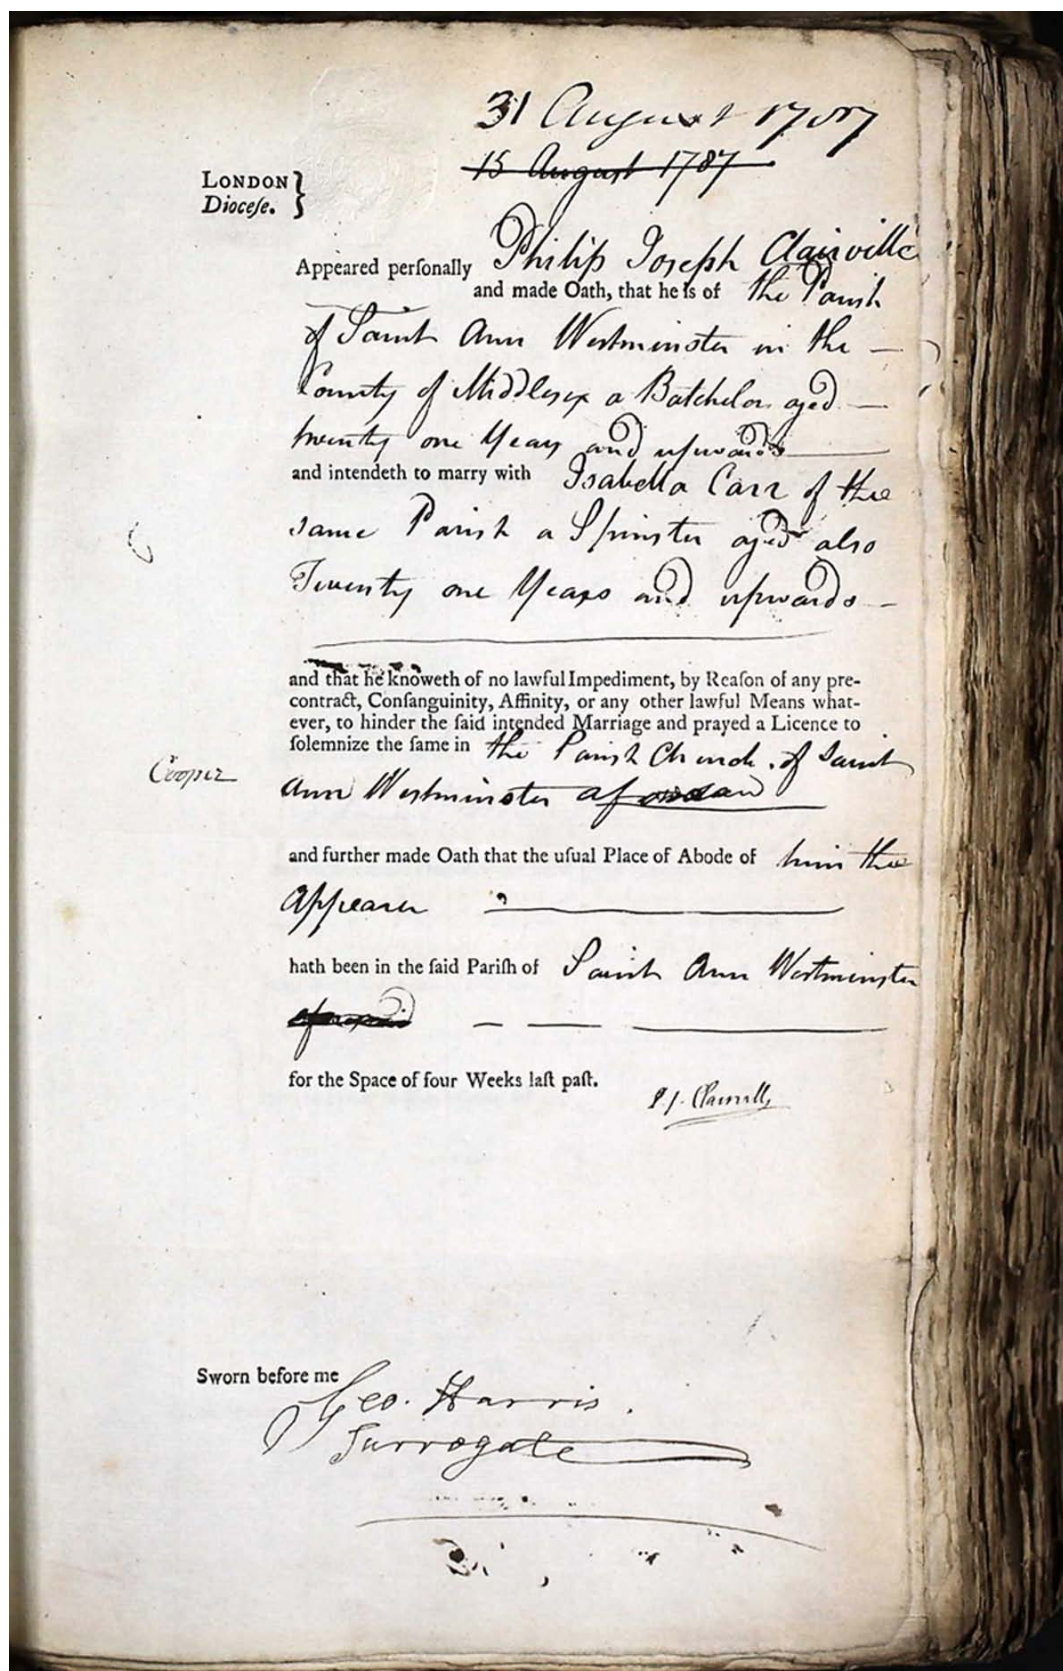 31 August 1787
15 August 1787
LONDON
Dioceſe. }
Philip Joseph Clairville
Appeared perſonally
and made Oath, that he is of the Parish
of Saint Ann Westminster in the —
County of Middlesex a Batchelor aged —
twenty one Years and upwards —
and intendeth to marry with Isabella Carr of the
same Parish a Spinster aged also
Twenty one Years and upwards —
and that he knoweth of no lawful Impediment, by Reaſon of any pre-
contract, Conſanguinity, Affinity, or any other lawful Means what-
ever, to hinder the ſaid intended Marriage and prayed a Licence to
ſolemnize the ſame in the Parish Church of Saint
Cooper
Ann Westminster
and further made Oath that the uſual Place of Abode of him the
Appearer
hath been in the ſaid Pariſh of Saint Ann Westminster
for the Space of four Weeks laſt paſt.
P. J. Clairville
Sworn before me
Geo. Harris.
Surrogate